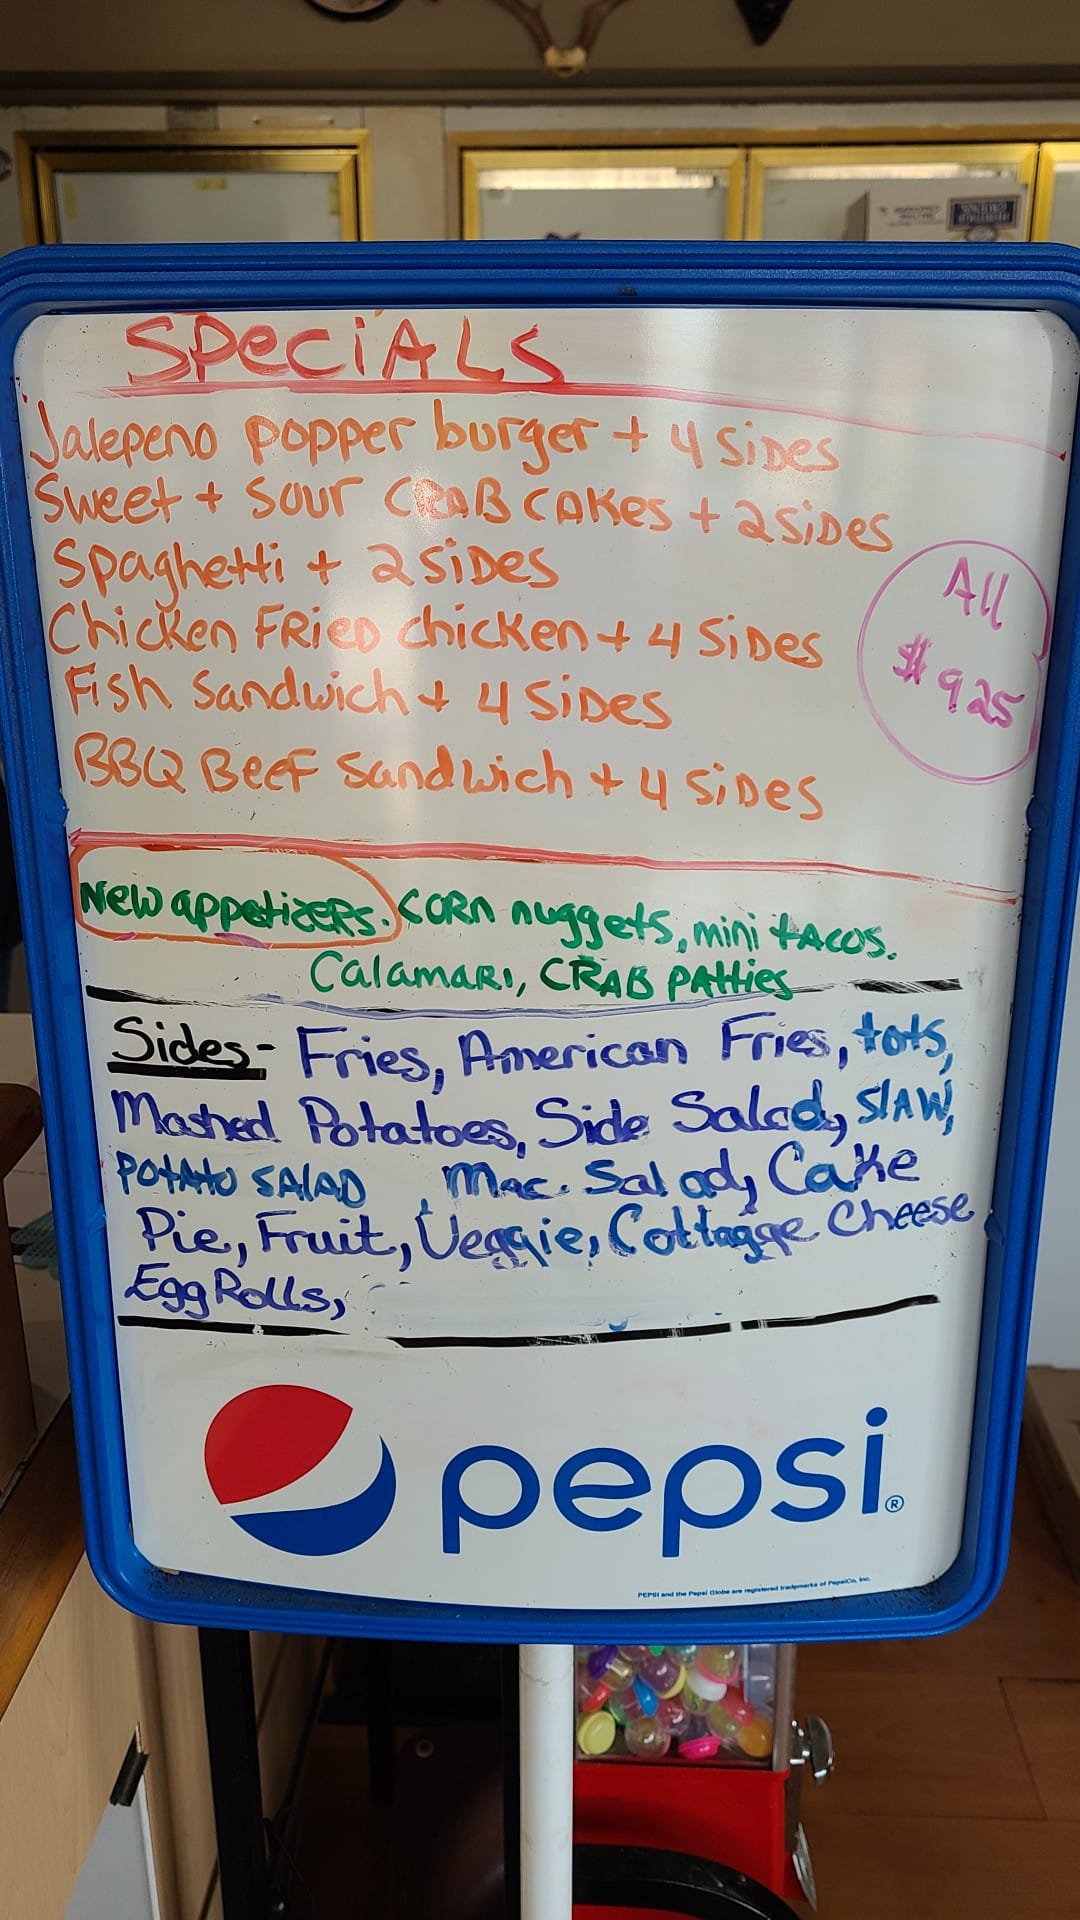 SPeciALS
Jalepeno popper burger + 4 SiDes
Sweet + Sour CRAB CAKes + 2 SiDes
Spaghetti + 2 SiDes
Chicken FRieD chicken + 4 SiDes
Fish Sandwich + 4 SiDes
BBQ BeeF Sandwich + 4 SiDes
All
$925
New appetizeRs. CORn nuggets, mini tACOS.
CalamaRi, CRAB PAtties
Sides- Fries, American Fries, tots,
Mashed Potatoes, Side Salad, SlAW,
POtAtO SAlAD , Mac. Salad, Cake
Pie, Fruit, Veggie, Cottagge Cheese
Egg Rolls,
pepsi®
PEPSI and the Pepsi Globe are registered trademarks of PepsiCo, Inc.